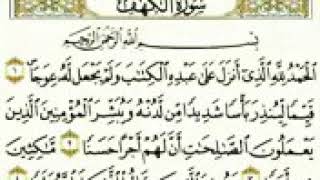 سورة الكهف
بِسْمِ ٱللَّهِ ٱلرَّحْمَٰنِ ٱلرَّحِيمِ
ٱلْحَمْدُ لِلَّهِ ٱلَّذِىٓ أَنزَلَ عَلَىٰ عَبْدِهِ ٱلْكِتَٰبَ وَلَمْ يَجْعَل لَّهُۥ عِوَجَا ١
قَيِّمًا لِّيُنذِرَ بَأْسًا شَدِيدًا مِّن لَّدُنْهُ وَيُبَشِّرَ ٱلْمُؤْمِنِينَ ٱلَّذِينَ
يَعْمَلُونَ ٱلصَّٰلِحَٰتِ أَنَّ لَهُمْ أَجْرًا حَسَنًا ٢ مَّٰكِثِينَ